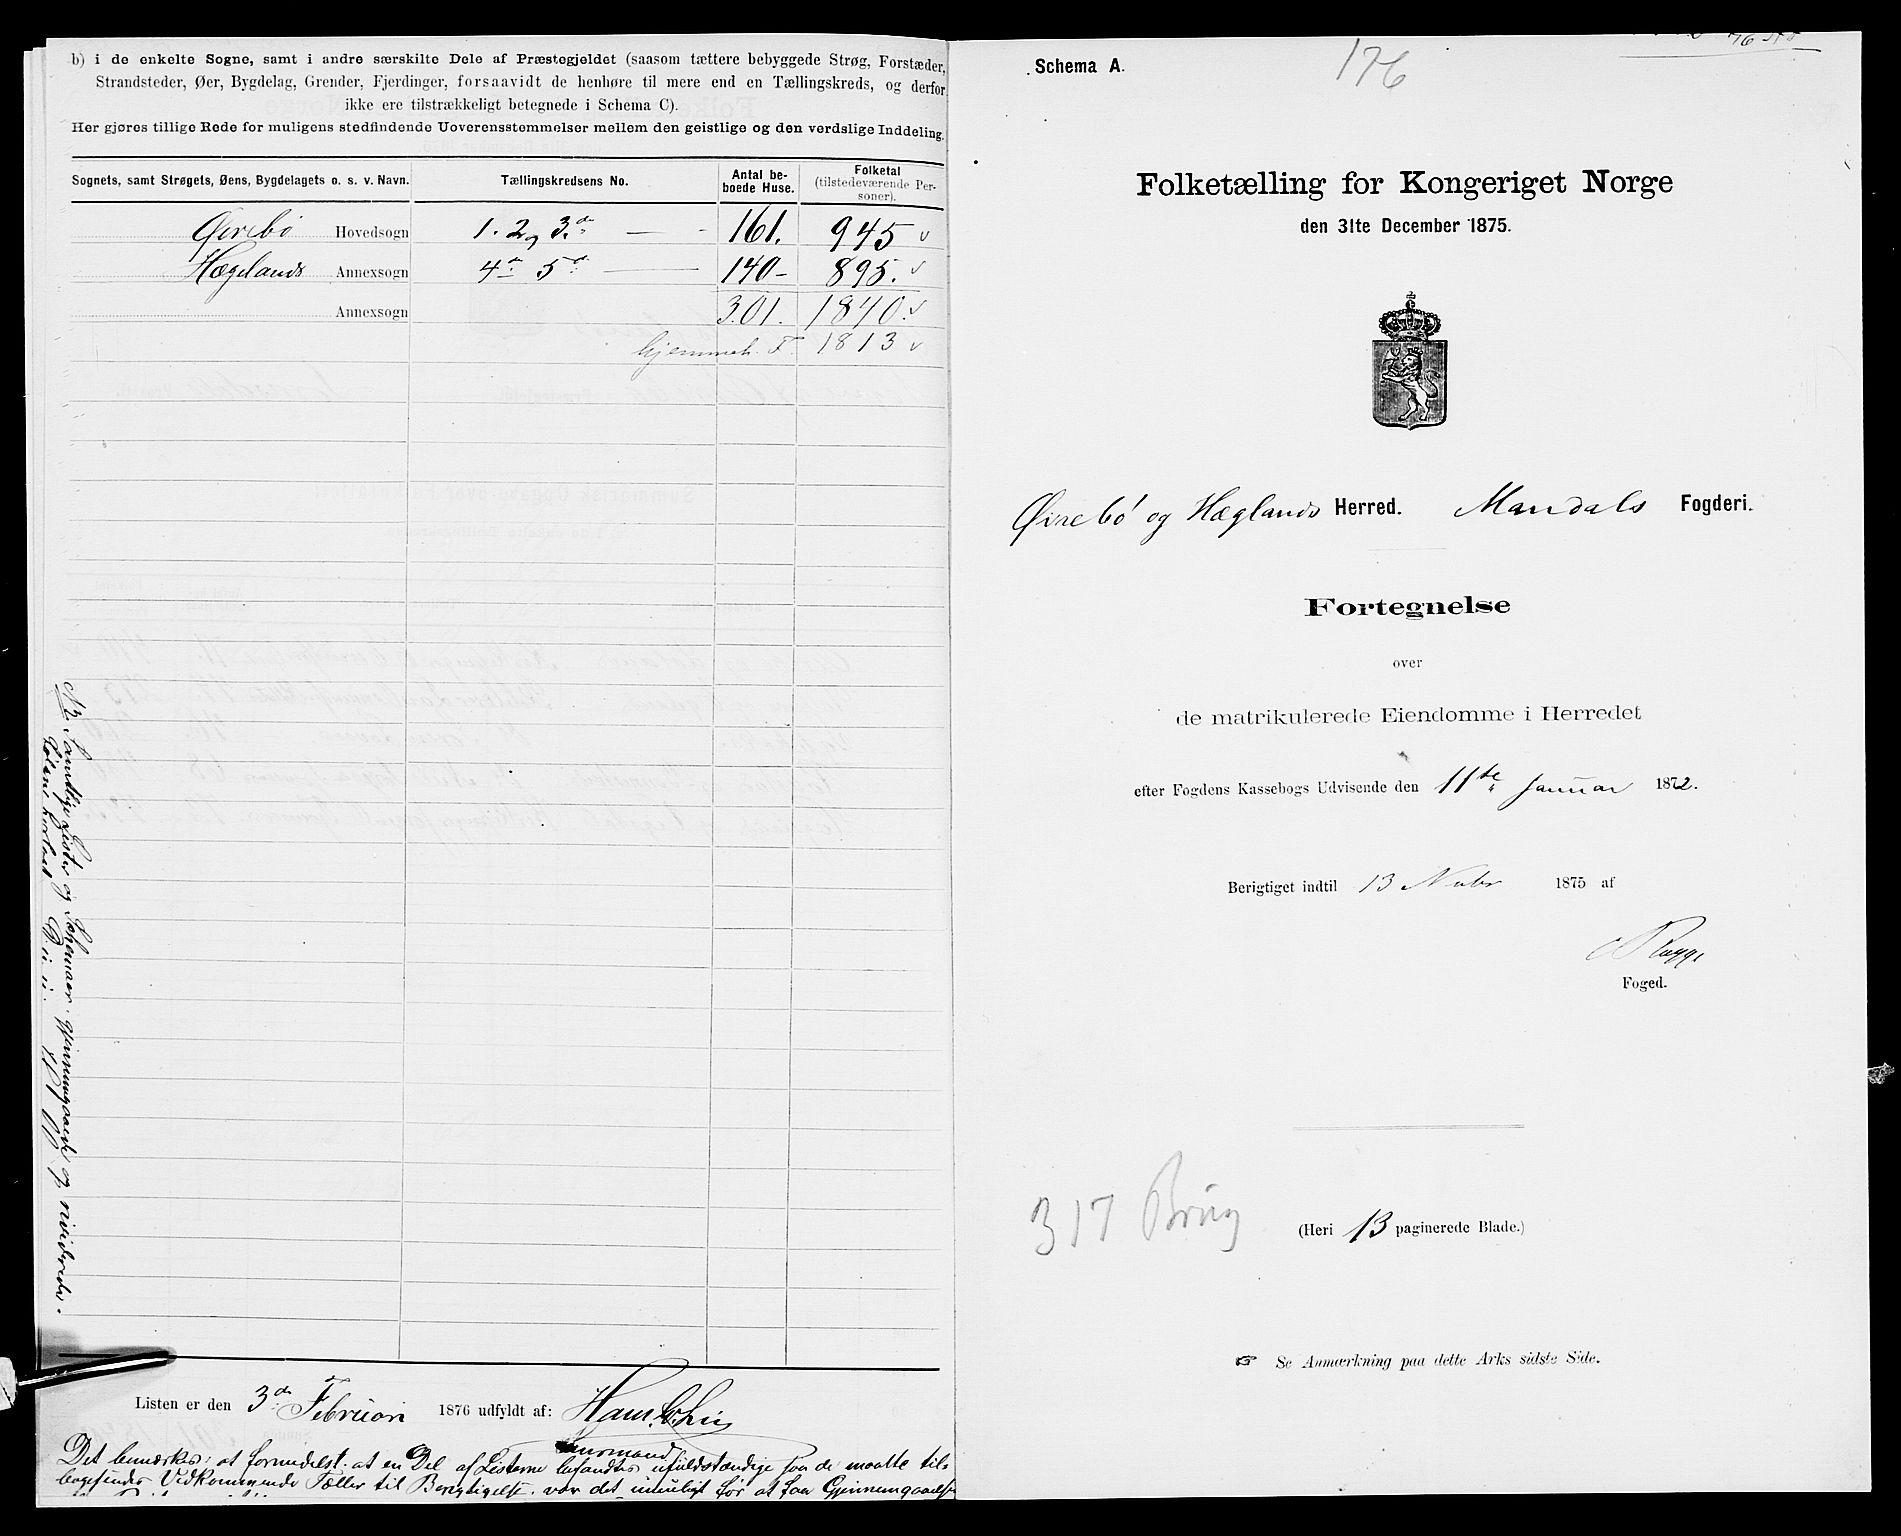 b) i de enkelte Sogne, samt i andre særskilte Dele af Præstegjeldet (saasom tættere bebyggede Strøg, Forstæder,
Strandsteder, Øer, Bygdelag, Grender, Fjerdinger, forsaavidt de henhøre til mere end en Tællingskreds, og derfor
ikke ere tilstrækkeligt betegnede i Schema C).
Her gjøres tillige Rede for muligens stedfindende Uoverensstemmelser mellem den geistlige og den verdslige Inddeling.
Sognets, samt Strøgets, Øens, Bygdelagets o. s. v. Navn. Tællingskredsens No. Antal be-boede Huse. Folketal (tilstedeværende Per-soner).
Øvrebø Hovedsogn 1. 2 og 3de 161. 945 v
Hægelands Annexsogn 4de 5de 140 895. v
Annexsogn 301. 1840. v
hjemmeh. F. 1813 v
NB Samtlige Lister og Schemaer gjennemgaaede og reviderede.
Listen er den 3de Februari 1876 udfyldt af:
Lensmand
Det bemærkes: at formedelst at en Del af Listerne befandtes ufuldstændige saa de maatte til-
bagesendes Vedkommende Tæller til Berigtigelse, var det umuligt for at faa Gjennemgaaelse
Schema A.
176
Folketælling for Kongeriget Norge
den 31te December 1875.
Øvrebø og Hæglands Herred. Mandals Fogderi.
Fortegnelse
over
de matrikulerede Eiendomme i Herredet
efter Fogdens Kassebogs Udvisende den 11te Januar 1872.
Berigtiget indtil 13 Novbr 1875 af
Foged.
317 Brug
(Heri 13 paginerede Blade.)
☞ Se Anmærkning paa dette Arks sidste Side.